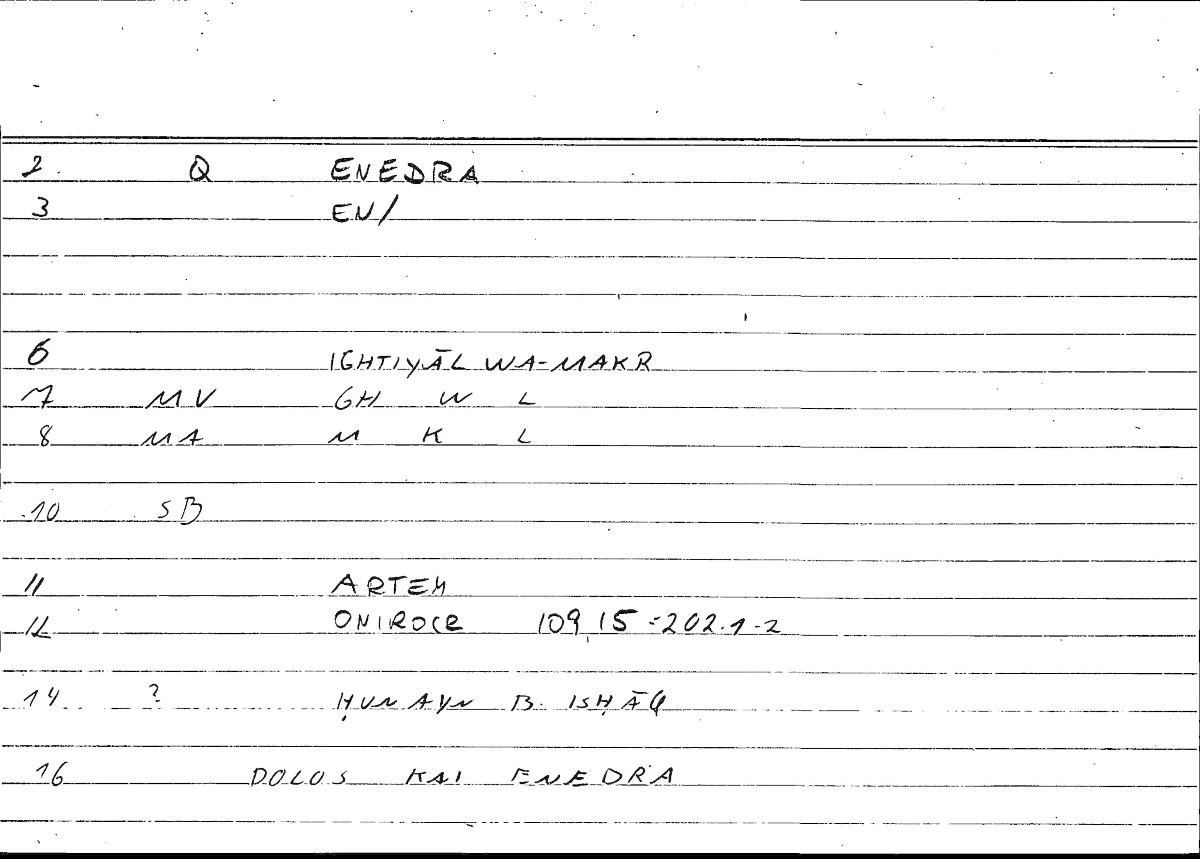 2. Q ENEDRA
3 EN/
6 IGHTIYĀL WA-MAKR
7 MV GH W L
8 MA M K L
10 SB
11 ARTEM
12 ONIROCR 109,15=202.1-2
14 ? ḤUNAYN B. ISḤĀQ
16 DOLOS KAI ENEDRA